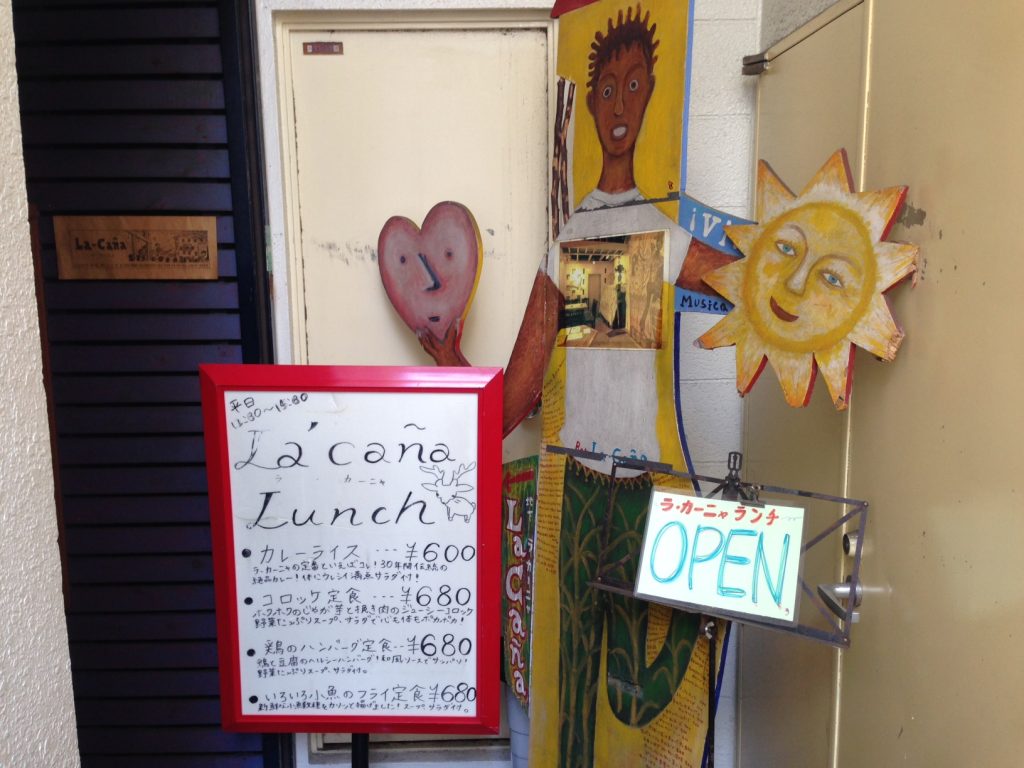 La-Caña
¡VI
Musica
By La Caña
La Caña
平日
11:30～15:30
La'caña
ラ カーニャ
Lunch
● カレーライス … ¥600
ラ・カーニャの定番といえばコレ！30年間伝統の
絶品カレー！体にウレシイ満点サラダ付！
● コロッケ定食 … ¥680
ホクホクのじゃが芋と挽き肉のジューシーコロッケ
野菜たっぷりスープ、サラダで心も体もポカポカ！
● 鶏のハンバーグ定食 … ¥680
鶏と豆腐のヘルシーハンバーグ！和風ソースでサッパリ！
野菜たっぷりスープ、サラダ付。
● いろいろ小魚のフライ定食 ¥680
新鮮な小魚数種をカリッと揚げました！スープ、サラダ付。
ラ・カーニャ ランチ
OPEN